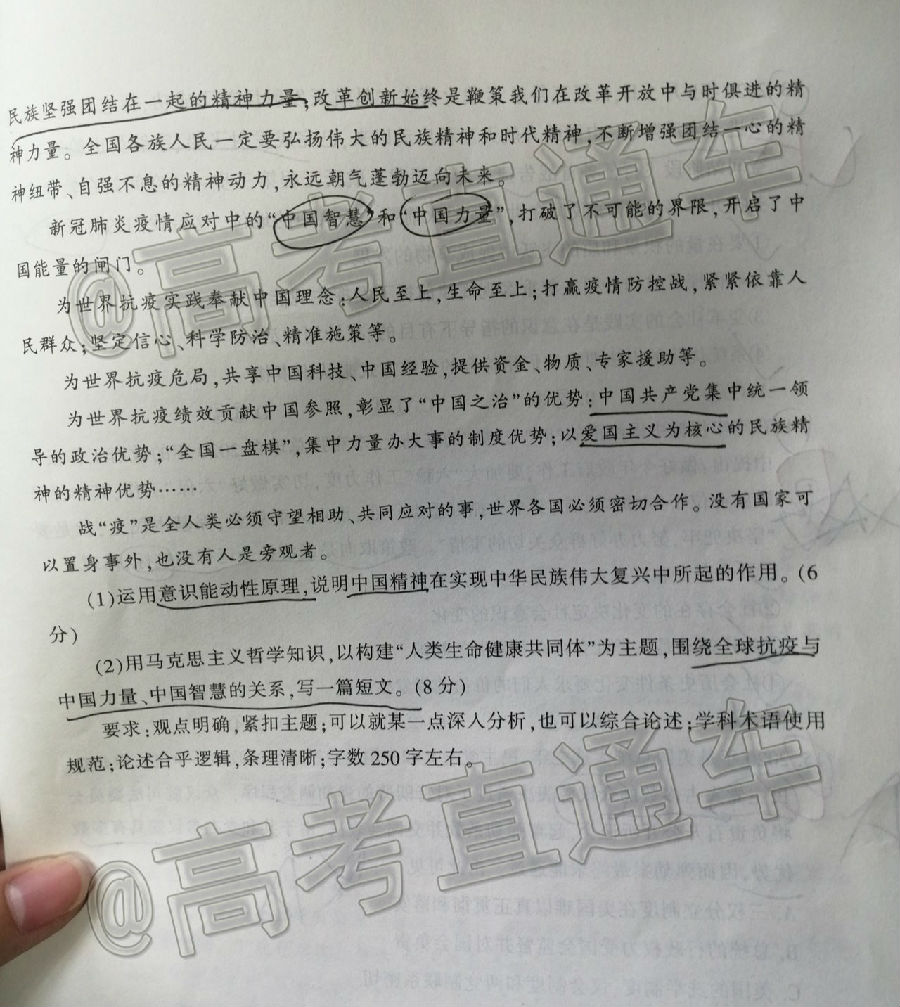 民族坚强团结在一起的精神力量,改革创新始终是鞭策我们在改革开放中与时俱进的精
神力量。全国各族人民一定要弘扬伟大的民族精神和时代精神,不断增强团结一心的精
神纽带、自强不息的精神动力,永远朝气蓬勃迈向未来。
新冠肺炎疫情应对中的“中国智慧”和“中国力量”,打破了不可能的界限,开启了中
国能量的闸门。
为世界抗疫实践奉献中国理念:人民至上,生命至上;打赢疫情防控战,紧紧依靠人
民群众;坚定信心、科学防治、精准施策等。
为世界抗疫危局,共享中国科技、中国经验,提供资金、物质、专家援助等。
为世界抗疫绩效贡献中国参照,彰显了“中国之治”的优势:中国共产党集中统一领
导的政治优势;“全国一盘棋”,集中力量办大事的制度优势;以爱国主义为核心的民族精
神的精神优势……
战“疫”是全人类必须守望相助、共同应对的事,世界各国必须密切合作。没有国家可
以置身事外,也没有人是旁观者。
(1)运用意识能动性原理,说明中国精神在实现中华民族伟大复兴中所起的作用。(6
分)
(2)用马克思主义哲学知识,以构建“人类生命健康共同体”为主题,围绕全球抗疫与
中国力量、中国智慧的关系,写一篇短文。(8分)
要求:观点明确,紧扣主题;可以就某一点深入分析,也可以综合论述;学科术语使用
规范;论述合乎逻辑,条理清晰;字数250字左右。
@高考直通车
@高考直通车